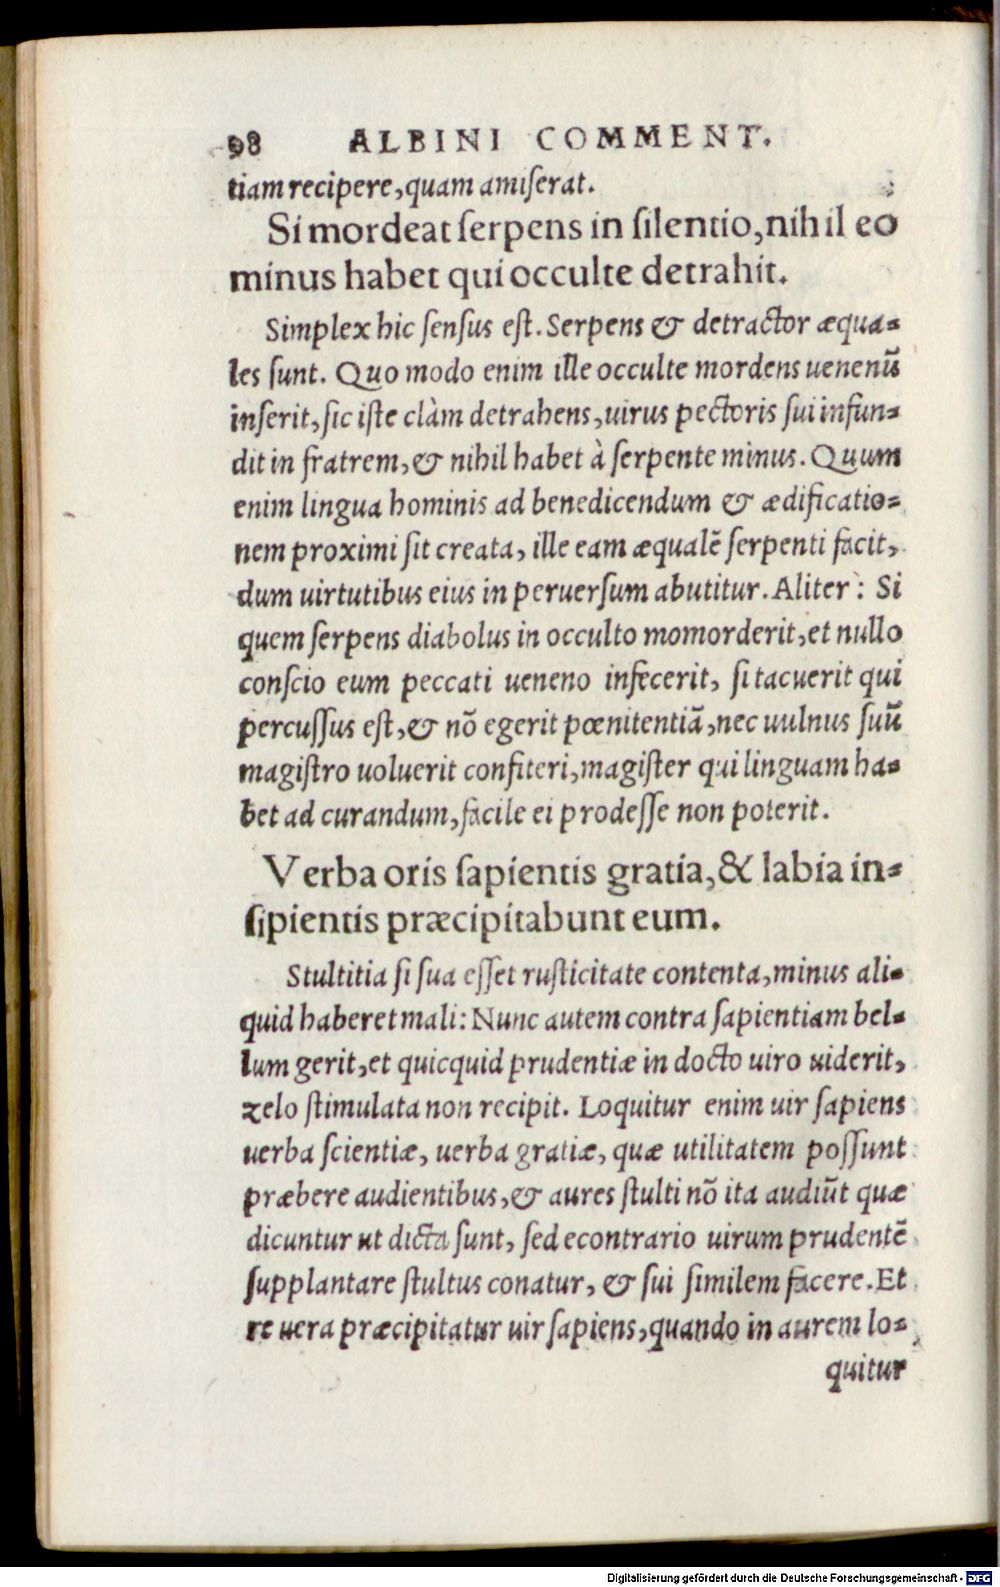 98 ALBINI COMMENT.
tiam recipere, quam amiſerat.
Si mordeat ſerpens in ſilentio, nihil eo
minus habet qui occulte detrahit.
Simplex hic ſenſus eſt. Serpens & detractor æqua-
les ſunt. Quo modo enim ille occulte mordens uenenū
inſerit, ſic iſte clàm detrahens, uirus pectoris ſui infun-
dit in fratrem, & nihil habet à ſerpente minus. Quum
enim lingua hominis ad benedicendum & ædificatio-
nem proximi ſit creata, ille eam æqualē ſerpenti facit,
dum uirtutibus eius in peruerſum abutitur. Aliter: Si
quem ſerpens diabolus in occulto momorderit, et nullo
conſcio eum peccati ueneno infecerit, ſi tacuerit qui
percuſſus eſt, & nō egerit pœnitentiā, nec uulnus ſuū
magiſtro uoluerit confiteri, magiſter qui linguam ha-
bet ad curandum, facile ei prodeſſe non poterit.
Verba oris ſapientis gratia, & labia in-
ſipientis præcipitabunt eum.
Stultitia ſi ſua eſſet ruſticitate contenta, minus ali-
quid haberet mali: Nunc autem contra ſapientiam bel-
lum gerit, et quicquid prudentiæ in docto uiro uiderit,
zelo ſtimulata non recipit. Loquitur enim uir ſapiens
uerba ſcientiæ, uerba gratiæ, quæ utilitatem poſſunt
præbere audientibus, & aures ſtulti nō ita audiūt quæ
dicuntur ut dicta ſunt, ſed econtrario uirum prudentē
ſupplantare ſtultus conatur, & ſui ſimilem facere. Et
re uera præcipitatur uir ſapiens, quando in aurem lo-
quitur
Digitalisierung gefördert durch die Deutsche Forschungsgemeinschaft - DFG